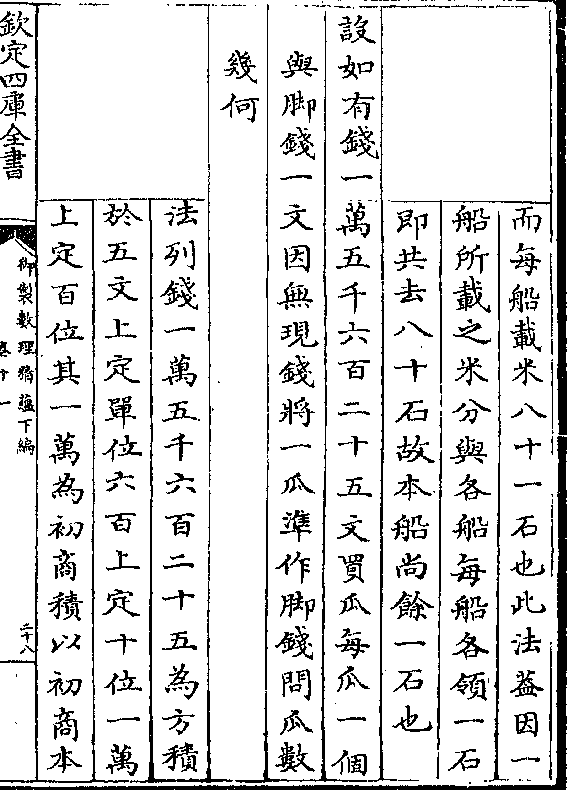 而每船載米八十一石也此法蓋因一
船所載之米分與各船每船各領一石
即共去八十石故本船尚餘一石也
設如有錢一萬五千六百二十五文買瓜每瓜一個
與脚錢一文因無現錢將一瓜準作脚錢問瓜數
幾何
法列錢一萬五千六百二十五為方積
於五文上定單位六百上定十位一萬
上定百位其一萬為初商積以初商本
欽定四庫全書
御製數理精蘊下編
卷十一
二十八